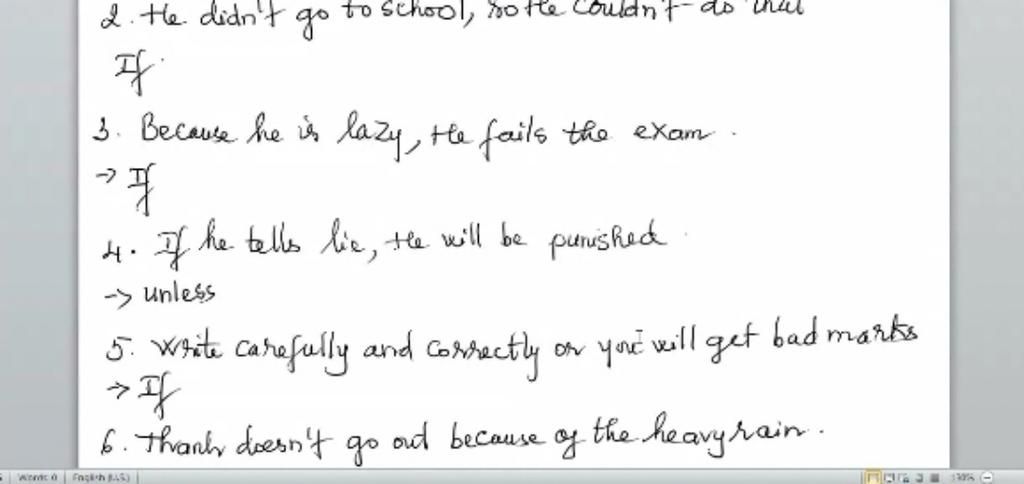 2. He didn't go to school, so He couldn't do that
If
3. Because he is lazy, He fails the exam.
→ If
4. If he tells lie, He will be punished
→ unless
5. Write carefully and correctly or you will get bad marks
→ If
6. Thanh doesn't go out because of the heavy rain.
Words: 0 English (U.S.) 130%